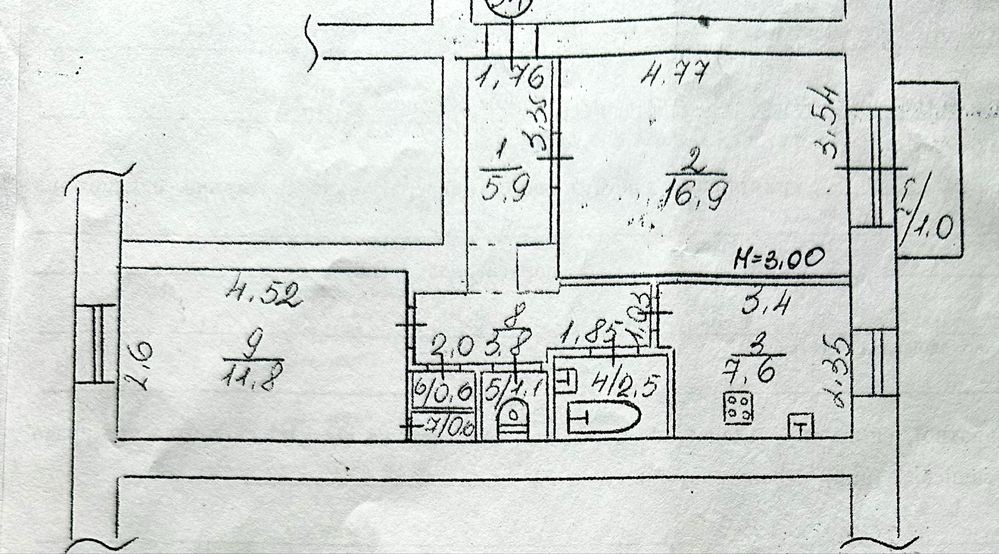 1,76
4.77
3.35
3.54
1
5.9
2
16.9
1.0
H=3.00
4.52
3.4
8
3.8
1.03
2.0
1.85
2.6
9
11.8
3
7.6
2.35
6/0.6
5/1.1
4/2.5
7/0.6